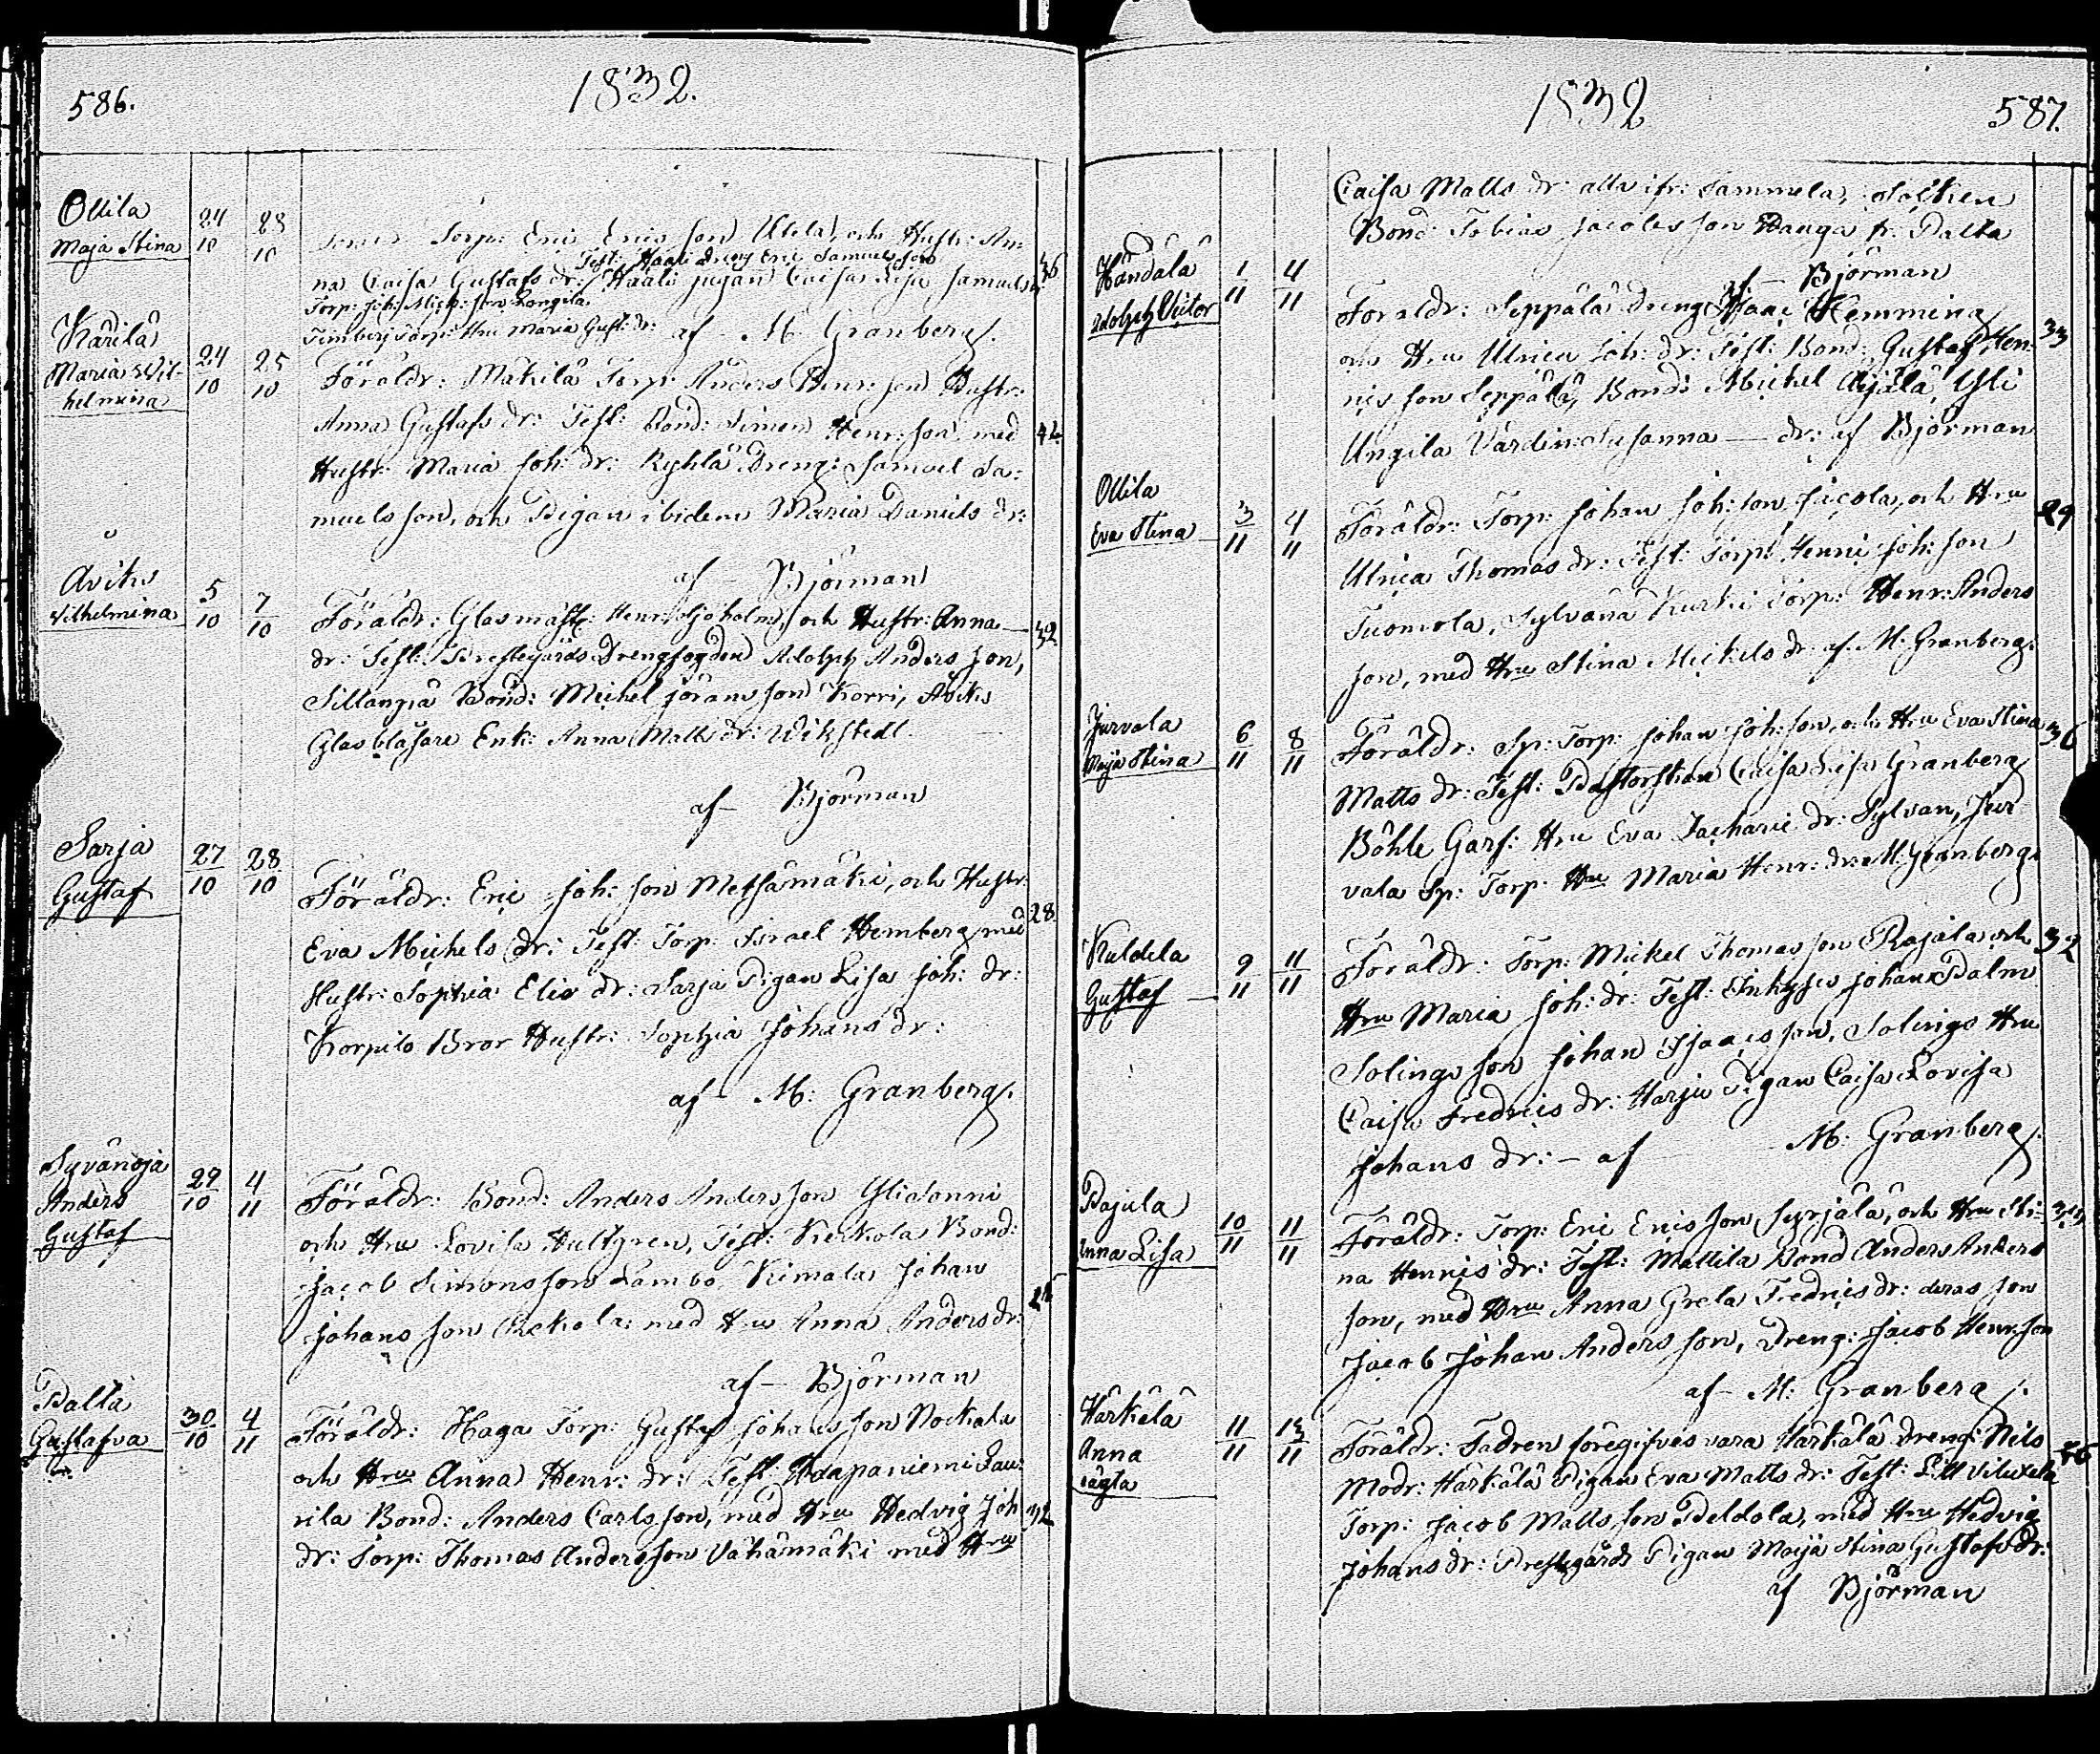 586. 1832.
Ollila
Maja Stina 24/10 28/10
Torp: Eric Erics son Utela, och Hustr: An-
Test: Haali Dreng Eric Samuels son
na Caisa Gustafs dr: Haali pigan Caisa Lisa Samuels dr 36
Torp: Joh: Mich: son Longila
Torp: Hru Maria Gust: dr: af M: Granberg.
Kärilä
Maria Wil-
helmina 24/10 25/10
Föräldr: Mäkilä Torp: Anders Henr: son Hustr:
Anna Gustafs dr: Test: Bond: Simon Henr: son med 42
Hustr: Maria Joh: dr: Ryhlä Dreng: Samuel Sa-
muels son, och Pigan ibidem Maria Daniels dr:
af Björman
Åviks
Vilhelmina 5/10 7/10
Föräldr: Glasmäst: Henr: Sjöholm, och Hustr: Anna — 32
dr: Test: Prestegårds Drengfogden Adolph Anders son,
Sillanpä Bond: Michel Jörans son Korri, Åviks
Glasblåsare Enk: Anna Matts dr: Wikstedt
af Björman
Sarja
Gustaf 27/10 28/10
Föräldr: Eric Joh: son Metsämäki, och Hustr:
Eva Michels dr: Test: Torp: Israel Hemberg med 28
Hustr: Sophia Elis dr: Sarja Pigan Lisa Joh: dr:
Korpilo Bror Hustr: Sophia Johans dr:
af M: Granberg.
Syvänoja
Anders
Gustaf 29/10 4/11
Föräldr: Bond: Anders Anders son Ylisonni
och Hru Lovisa Hultgren, Test: Kerkola Bond:
Jacob Simons son Lambo, Kimala Johan
Johans son Eskola med Hru Anna Anders dr:
af Björman
Palta
Gustafva 30/10 4/11
Föräldr: Haga Torp: Gustaf Johans son Nockala
och Hru Anna Henr: dr: Test: Haapaniemi Lau-
rila Bond: Anders Carls son, med Hru Hedvig Joh 32
dr: Torp: Thomas Anders son Vähämäki med Hru
1832 587.
Caisa Matts dr: alla ifr: Sammela,
Bond Tobias Jacobs son Hauga fr: Palta
af Björman
Händälä
Adolph Victor 1/11 4/11
Föräldr: Seppälä Dreng Isaac Hemming
och Hru Ulrica Joh: dr: Test: Bond: Gustaf Hen- 33
rics son Seppälä, Bond: Michel Äijälä, Yli
Ungila Värdin: Susanna — dr: af Björman
Ollila
Eva Stina 3/11 4/11
Föräldr: Torp: Johan Joh: son Jacola, och Hru 29
Ulrica Thomas dr: Test: Torp: Henric Joh: son
Tuomola, Sylvänä Kurki Torp: Henr: Anders
son, med Hru Stina Mickels dr: af M: Granberg.
Jurvala
Maja Stina 6/11 8/11
Föräldr: Sp: Torp: Johan Joh: son, och Hru Eva Stina 36
Matts dr: Test: Pastorskan Caisa Lisa Granberg
Böhle Garf: Hru Eva Zacharie dr: Sylvan, Jur
vala Sp: Torp: Hru Maria Henr: dr: M: Granberg.
Kuldela
Gustaf 9/11 11/11
Föräldr: Torp: Mickel Thomas son Rajala och 32
Hru Maria Joh: dr: Test: Johan Palm
Solings son Johan Isaacs son, Solings Hru
Caisa Fredrics dr: Harju Pigan Caisa Lovisa
Johans dr: — af M: Granberg.
Pajula
Anna Lisa 10/11 11/11
Föräldr: Torp: Eric Erics son Syrjälä, och Hru Sti-
na Henrics dr: Test: Mattila Bond Anders Anders
son, med Hru Anna Greta Fredrics dr: deras son
Jacob Johan Anders son, Dreng: Jacob Henr: son
af M: Granberg.
Härkälä
Anna
Agta 11/11 13/11
Föräldr: Fadren föregifves vara Härkälä Dreng: Nils
Modr: Härkälä Pigan Eva Matts dr: Test:
Torp: Jacob Matts son Peldola, med Hru Hedvig
Johans dr: Prestgårds Pigan Maja Stina Gustafs dr:
af Björman